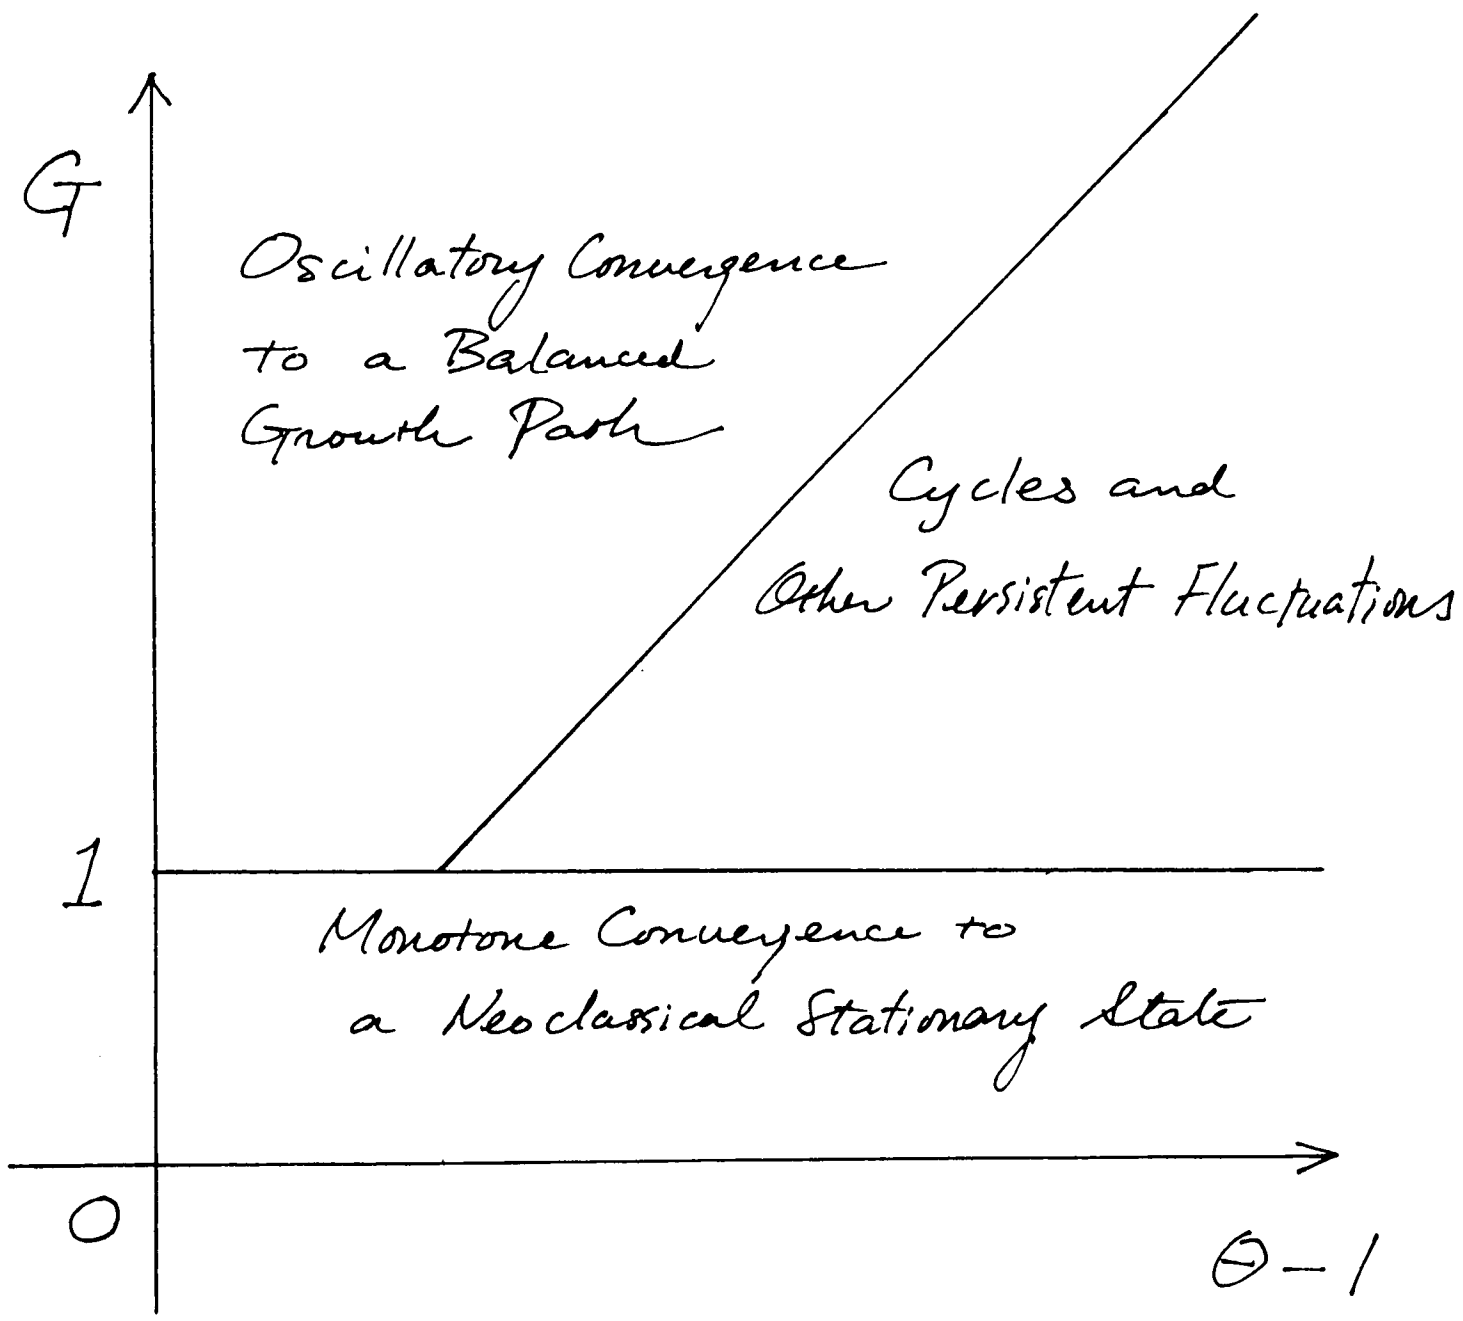 G
Oscillatory Convergence
to a Balanced
Growth Path
Cycles and
Other Persistent Fluctuations
1
Monotone Convergence to
a Neoclassical Stationary State
0
Θ-1